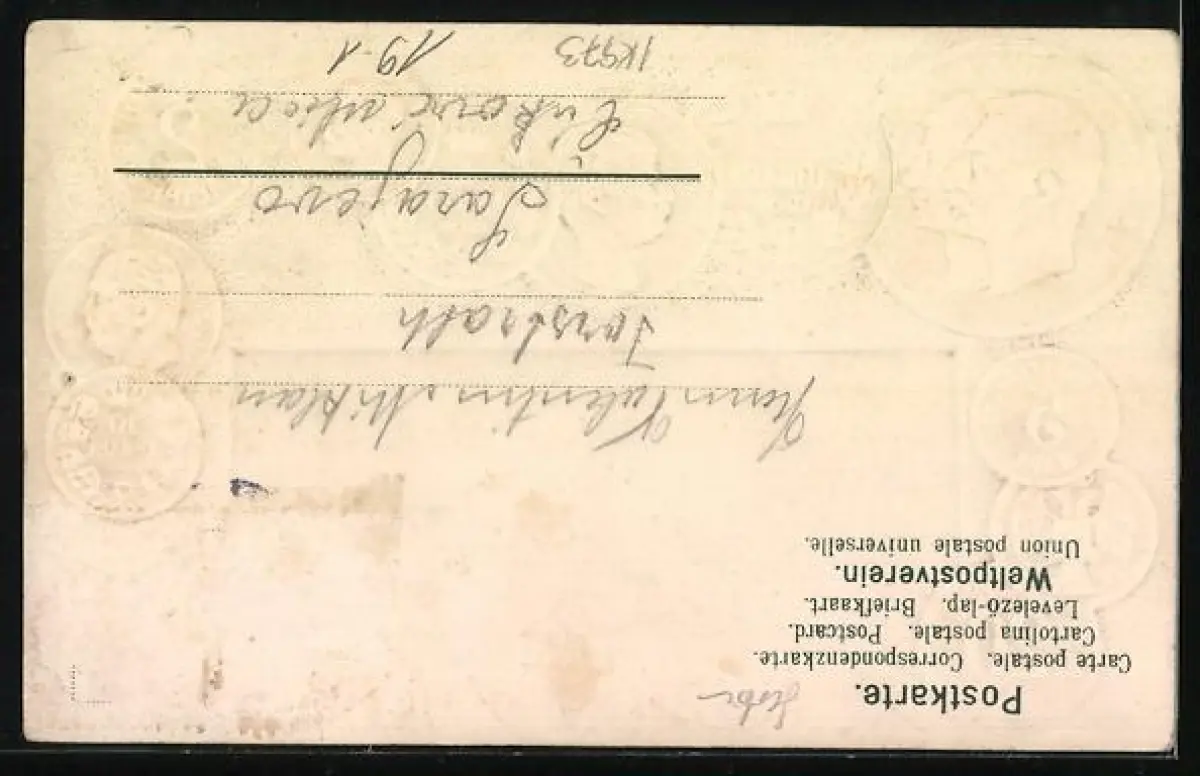 Postkarte.
Carte postale. Correspondenzkarte.
Cartolina postale. Postcard.
Levelező-lap. Briefkaart.
Weltpostverein.
Union postale universelle.
Herrn Valentin Miklau
Forstrath
Sarajevo
19 1
1K973